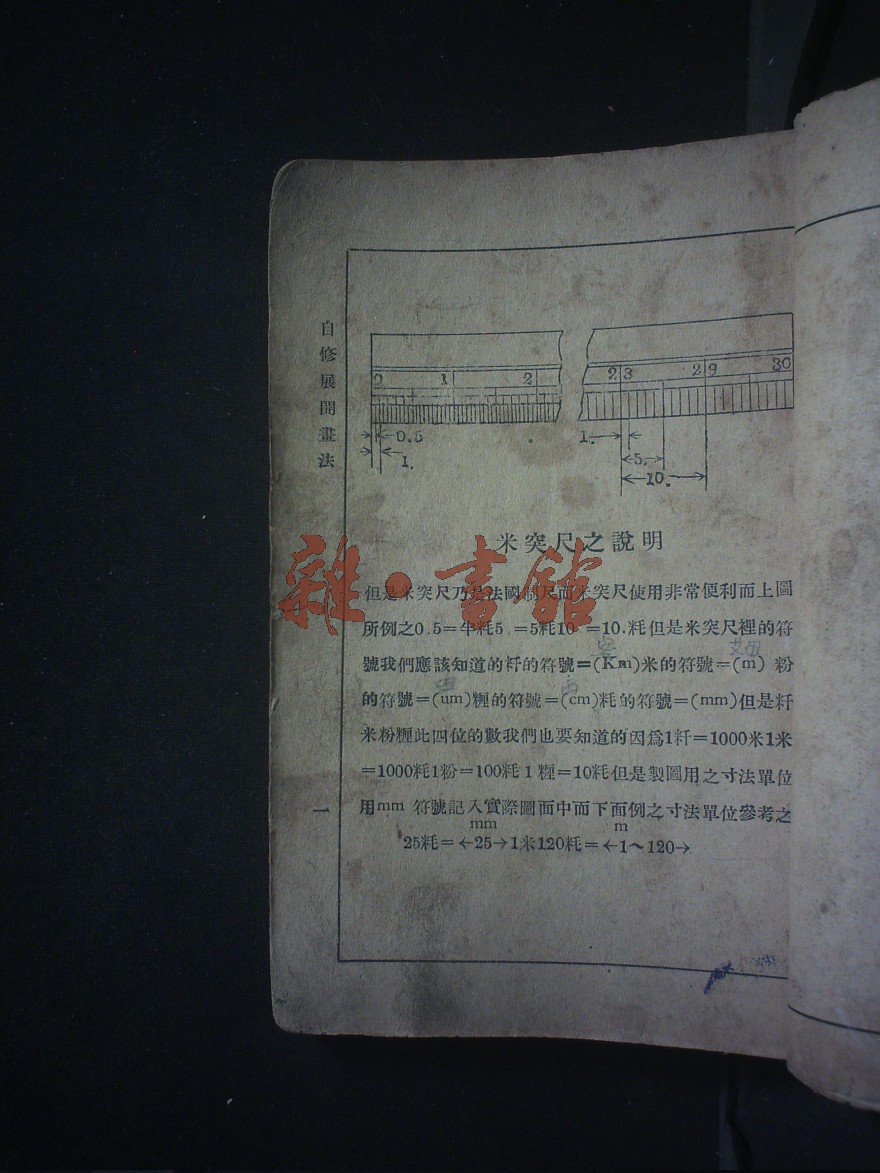 自修展開畫法
0 1 2 2 3 2 9 30
0.5
1.
1.
5.
10.
米突尺之說明
但是米突尺乃是法國制尺而米突尺使用非常便利而上圖
所例之0.5=半粍5.=5粍10.=10.粍但是米突尺裡的符
號我們應該知道的粁的符號=(Km)米的符號=(m) 粉
的符號=(um)糎的符號=(cm)粍的符號=(mm)但是粁
米粉糎此四位的數我們也要知道的因爲1粁=1000米1米
=1000粍1粉=100粍1糎=10粍但是製圖用之寸法單位
用mm 符號記入實際圖面中而下面例之寸法單位參考之
mm m
25粍=←25→1米120粍=←1～120→
一
雜·書館